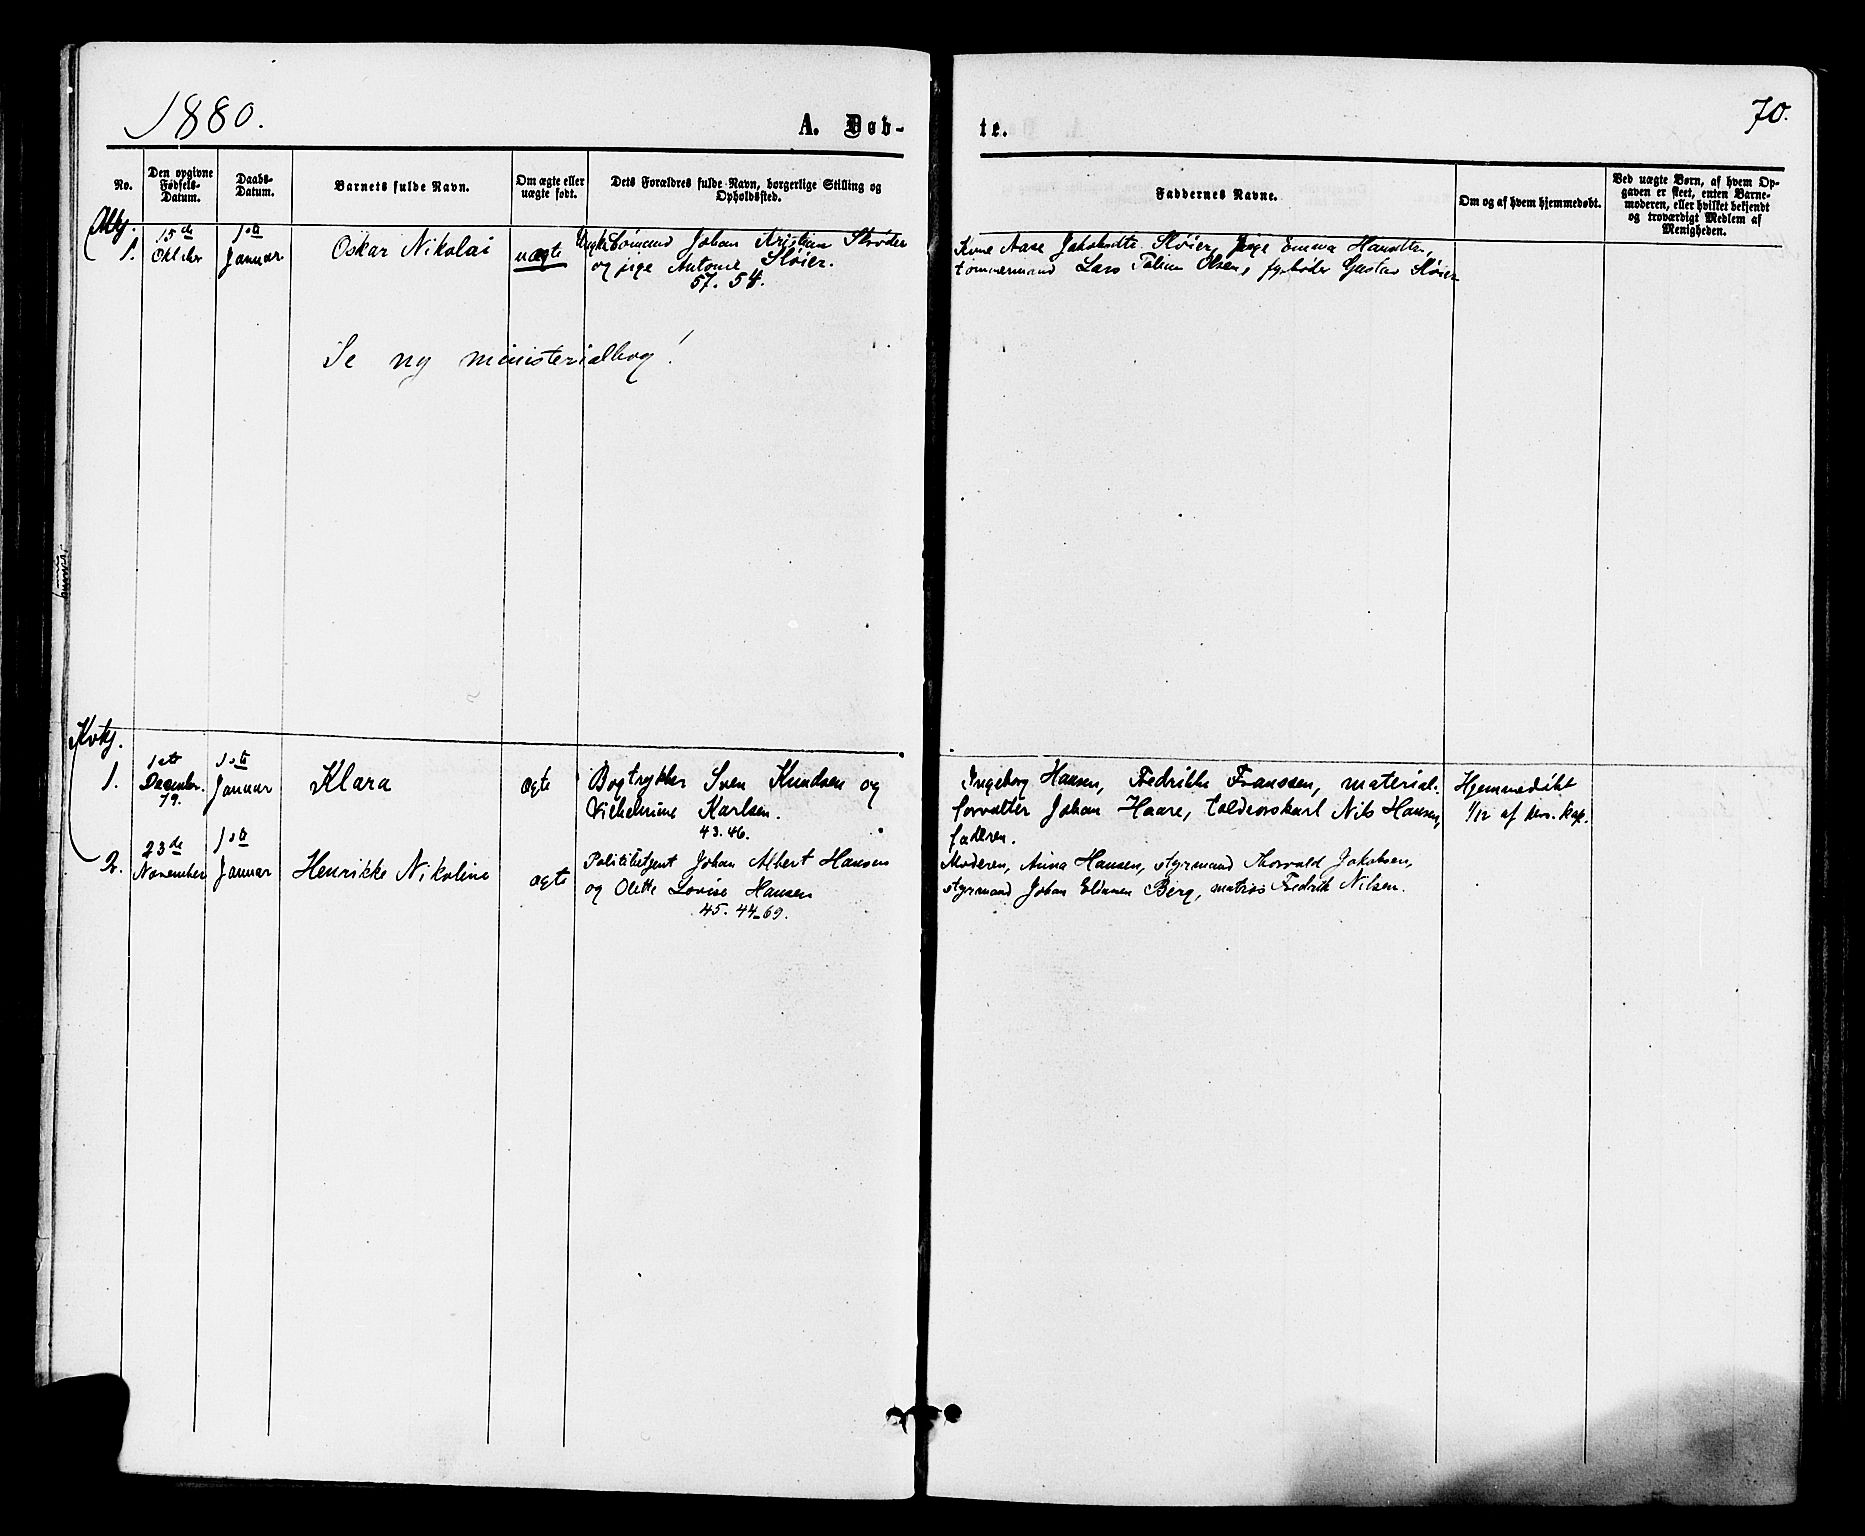 1880.
A. Døb-
te.
70.
No.
Den opgivne
Fødsels-
Datum.
Daabs-
Datum.
Barnets fulde Navn.
Om ægte eller
uægte født.
Dets Forældres fulde Navn, borgerlige Stilling og
Opholdssted.
Faddernes Navne.
Om og af hvem hjemmedøbt.
Ved uægte Børn, af hvem Op-
gaven er skeet, enten Barne-
moderen, eller hvilket bekjendt
og troværdigt Medlem af
Menigheden.
1.
15de
Oktober
1ste
Januar
Oskar Nikolai
uægte
Ungk. Sømand Johan Kristian Skrøder
og pige Antonie Sløier.
57. 54.
Kone Aase Jakobsdtr. Sløier, pige Emma Hansdtr.,
tømmermand Lars Tobias Olsen, fyrbøder Gustav Sløier
Se ny ministerialbog!
Kvkj.
1.
1ste
December.
79.
1ste
Januar
Klara
ægte
Bogtrykker Sven Knudsen og
Vilhelmine Karlsen.
43. 46.
Ingeborg Hansen, Fredrikke Franssen, material-
forvalter Johan Haare, toldvorskarl Nils Hansen,
faderen.
Hjemmedøbt
1/12 af pers. kap.
2.
23de
November
1ste
Januar
Henrikke Nikoline
ægte
Politibetjent Johan Albert Hansen
og Olette Lovise Hansen
45. 44-69.
Moderen, Anna Hansen, styrmand Thorvald Jakobsen,
styrmand Johan Berg, matros Fredrik Nilsen.